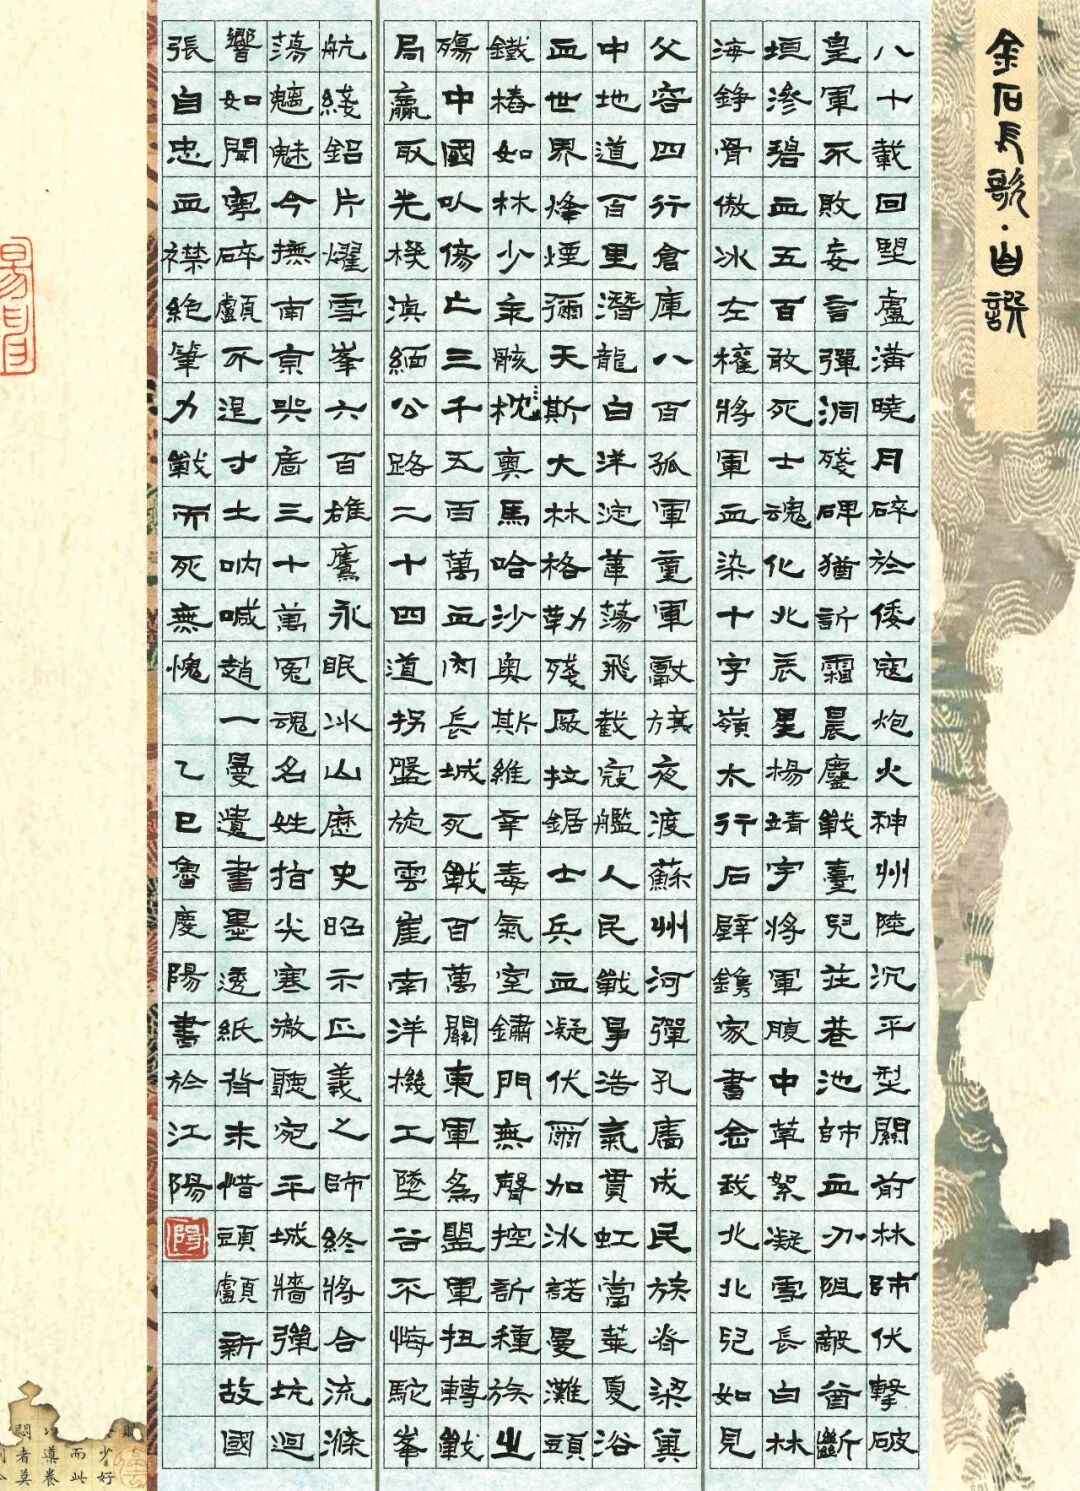 金石長歌·自譔
八十載回朢盧溝曉月碎於倭寇炮火神州陸沉平型關前林師伏擊破
皇軍不敗妄言彈洞殘碑猶訢霜晨鏖戰臺兒莊巷池師血刃阻敵酋斷
垣滲碧血五百敢死士魂化北辰星楊靖宇將軍腹中草絮凝雪長白林
海錚骨傲冰左權將軍血染十字嶺太行石壁鐫家書念我北北兒如見
父容四行倉庫八百孤軍童軍獻旗夜渡蘇州河彈孔成民族脊梁冀
中地道百里潛龍白洋淀葦蕩飛截寇艦人民戰爭浩氣貫虹當華夏浴
血世界烽煙彌天斯大林格勒殘廠拉鋸士兵血凝伏爾加冰諾曼灘頭
鐵樁如林少年骸枕奧馬哈沙奧斯維辛毒氣室鏽門無聲控訢種族之
殤中國以傷亡三千五百萬血肉長城死戰百萬關東軍為盟軍扭轉戰
局贏取先機滇緬公路二十四道拐盤旋雲崖南洋機工墜谷不悔駝峯
航綫鋁片耀雪峯六百雄鷹永眠冰山歷史昭示正義之師終將合流滌
蕩魑魅今撫南京哭廧三十萬冤魂名姓指尖寒徹聽宛平城牆彈坑迴
響如聞寧碎顱不退寸土吶喊趙一曼遺書墨透紙背未惜頭顱新故國
張自忠血襟絕筆力戰而死無愧 乙巳魯慶陽書於江陽